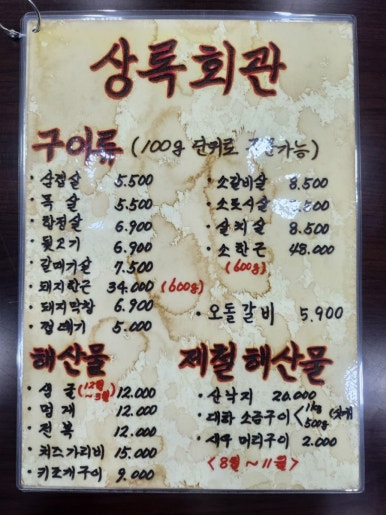 상록회관
구이류 (100g 단위로 주문가능)
· 삼겹살 5.500
· 목살 5.500
· 항정살 6.900
· 뒷고기 6.900
· 갈매기살 7.500
· 돼지한근 34.000 (600g)
· 돼지막창 6.900
· 껍데기 5.000
· 소갈비살 8.500
· 소토시살 8.500
· 살치살 8.500
· 소한근 48.000
(600g)
· 오돌갈비 5.900
해산물
· 생굴 (12월 ~3월) 12.000
· 멍게 12.000
· 전복 12.000
· 치즈가리비 15.000
· 키조개구이 9.000
제철 해산물
· 산낙지 20.000
· 대하 소금구이 < 1kg 500g
· 새우 머리구이 2.000
< 8월 ~ 11월 >